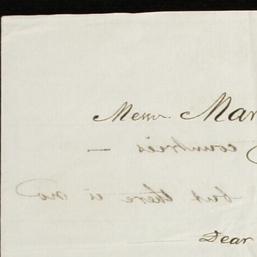 Messrs. Mar
countries —
but there is no
Dear